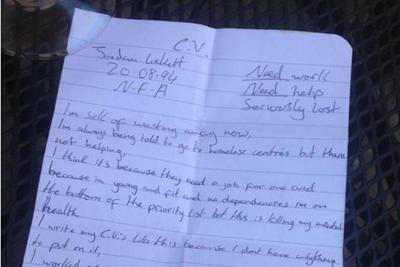 C.V.
Jordan
20.08.94
N.F.A
Need work
Need help
Seriously Lost
I'm sick of wasting away now,
I'm always being told to go to homeless centres but there
not helping,
I think it's because they need a job for one and
because im young and fit and no dependancies im on
the bottom of the priority list but this is killing my mental
health
I write my CV's like this because I dont have anything
to put on it,
I worked